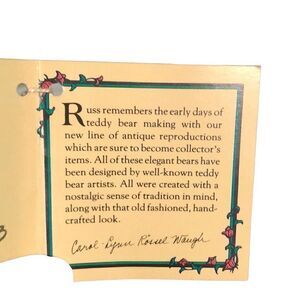 Russ remembers the early days of
teddy bear making with our
new line of antique reproductions
which are sure to become collector's
items. All of these elegant bears have
been designed by well-known teddy
bear artists. All were created with a
nostalgic sense of tradition in mind,
along with that old fashioned, hand-
crafted look.
Carol-Lynn Rössel Waugh